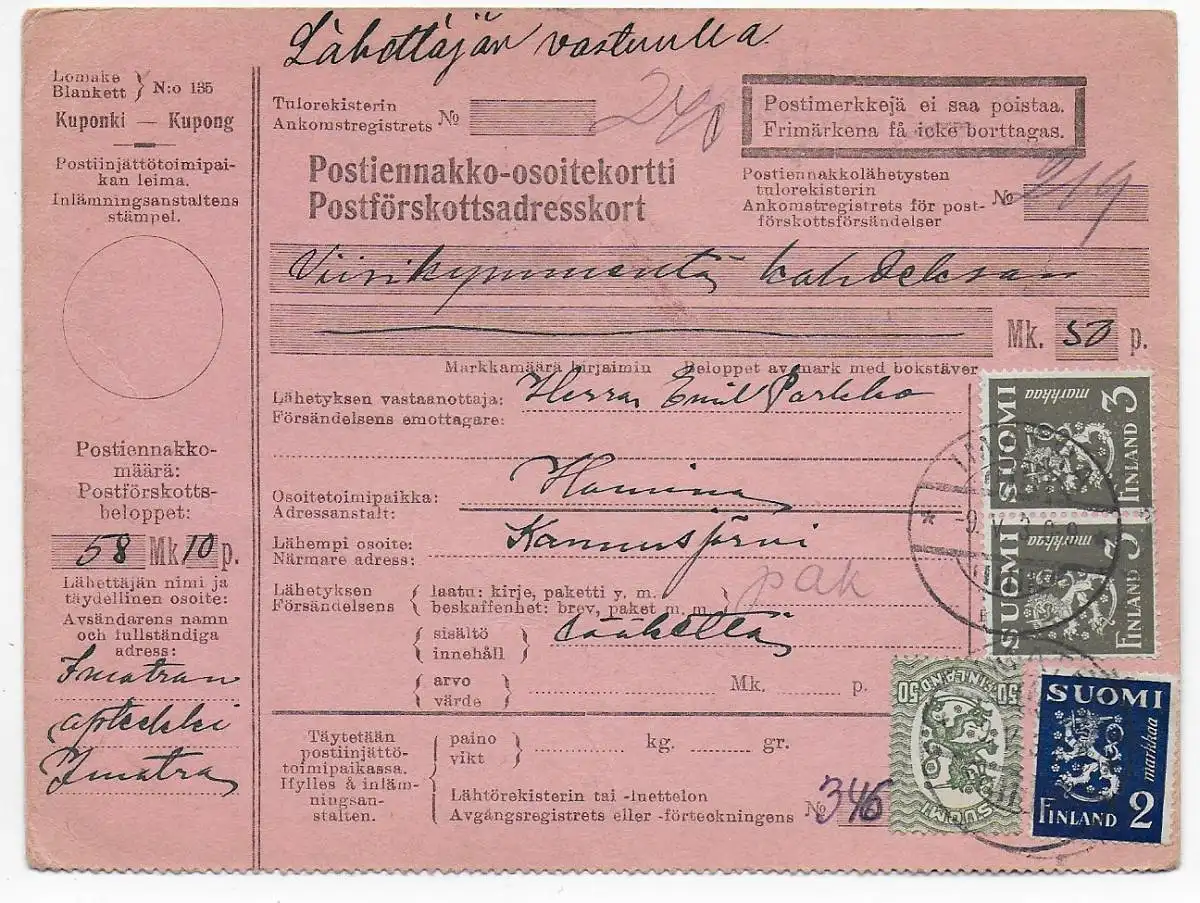 Lähettäjän vastuulla
Lomake
Blankett } N:o 135
Kuponki — Kupong
Postiinjättötoimipai-
kan leima.
Inlämningsanstaltens
stämpel.
Postiennakko-
määrä:
Postförskotts-
beloppet:
58 Mk 10 p.
Lähettäjän nimi ja
täydellinen osoite:
Avsändarens namn
och fullständiga
adress:
Imatran
apteekki
Imatra
Tulorekisterin
Ankomstregistrets № 
240
Postimerkkejä ei saa poistaa.
Frimärkena få icke borttagas.
Postiennakko-osoitekortti
Postförskottsadresskort
Postiennakkolähetysten
tulorekisterin
Ankomstregistrets för post-
förskottsförsändelser
№ 219
Viisikymmentä kahdeksan
Mk. 50 p.
Markkamäärä kirjaimin Beloppet av mark med bokstäver
Lähetyksen vastaanottaja: Herra Emil Parkko
Försändelsens emottagare:
Osoitetoimipaikka: Hamina
Adressanstalt:
Lähempi osoite: Kannusjärvi
Närmare adress:
Lähetyksen
Försändelsens
laatu: kirje, paketti y. m.
beskaffenhet: brev, paket m. m.
pak
sisältö
innehåll
lääkettä
arvo
värde
Mk. p.
Täytetään
postiinjättö-
toimipaikassa.
Ifylles å inläm-
ningsan-
stalten.
paino
vikt
kg. gr.
Lähtörekisterin tai -luettelon
Avgångsregistrets eller -förteckningens № 346
SUOMI
markkaa
3
FINLAND
SUOMI
markkaa
3
FINLAND
50 FINLAND 50
SUOMI
SUOMI
markkaa
FINLAND 2